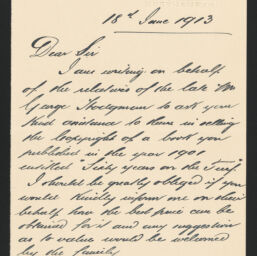 18th June 1913
Dear Sir
I am writing on behalf
of the relatives of the late Mr
George Hodgman to ask your
kind assistance to them in selling
the copyright of a book you
published in the year 1901
entitled "Sixty years on the Turf".
I should be greatly obliged if you
would kindly inform me on their
behalf how the best price can be
obtained for it and any suggestion
as to value would be welcomed
by the family